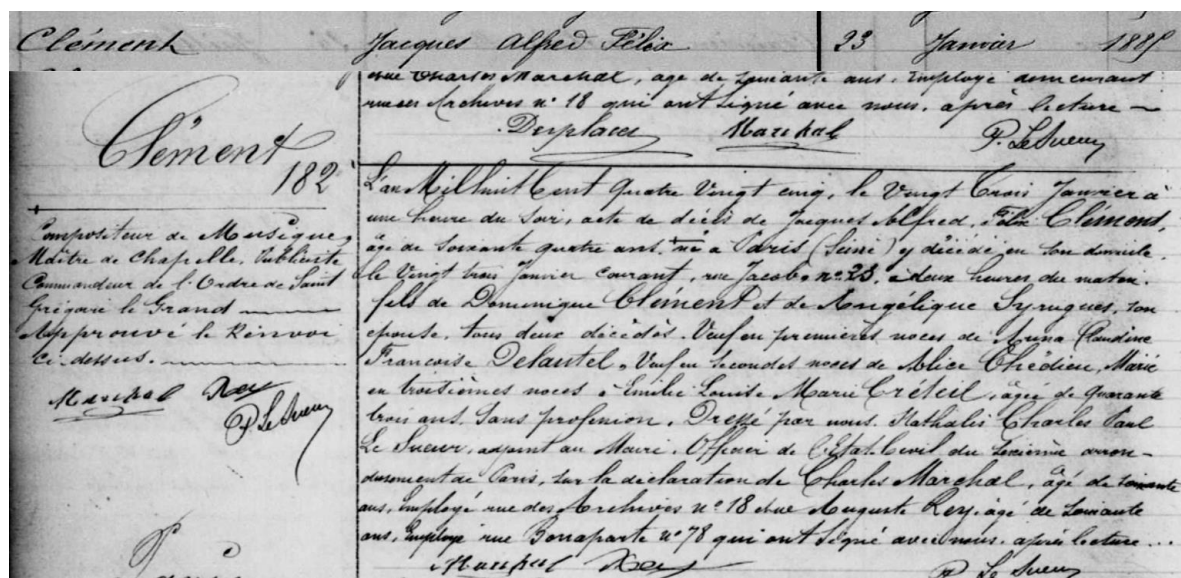 Clément Jacques Alfred Félix 23 Janvier 1885
Charles Marchal, âgé de soixante ans, Employé demeurant
rue des Archives n° 18 qui ont signé avec nous, après lecture
Marchal P. Le Sueur
Clément
182
Compositeur de Musique,
Maître de Chapelle, Publiciste
Commandeur de l'Ordre de Saint
Grégoire le Grand
Approuvé le Renvoi
ci-dessus.
Marchal Rey
P. Le Sueur
L'an Mil huit Cent Quatre Vingt cinq, le Vingt Trois Janvier à
une heure du Soir, acte de décès de Jacques Alfred, Félix Clément,
âgé de Soixante quatre ans, né à Paris (Seine) y décédé en son domicile
le Vingt trois Janvier courant, rue Jacob n° 23, à deux heures du matin.
fils de Dominique Clément et de Angélique Syrugues, son
épouse, tous deux décédés. Veuf en premières noces de Anna Claudine
Françoise Delautel, Veuf en Secondes noces de Alice Thédieu, Marié
en troisièmes noces à Emilie Louise Marie Créteil, âgée de quarante
trois ans, Sans profession. Dressé par nous, Nathalis Charles Paul
Le Sueur, adjoint au Maire, Officier de l'Etat-Civil du Sixième arron-
dissement de Paris, Sur la déclaration de Charles Marchal, âgé de soixante
ans, Employé rue des Archives n° 18 et de Auguste Rey, âgé de Soixante
ans, Employé rue Bonaparte n° 78 qui ont Signé avec nous, après lecture
Marchal Rey P. Le Sueur